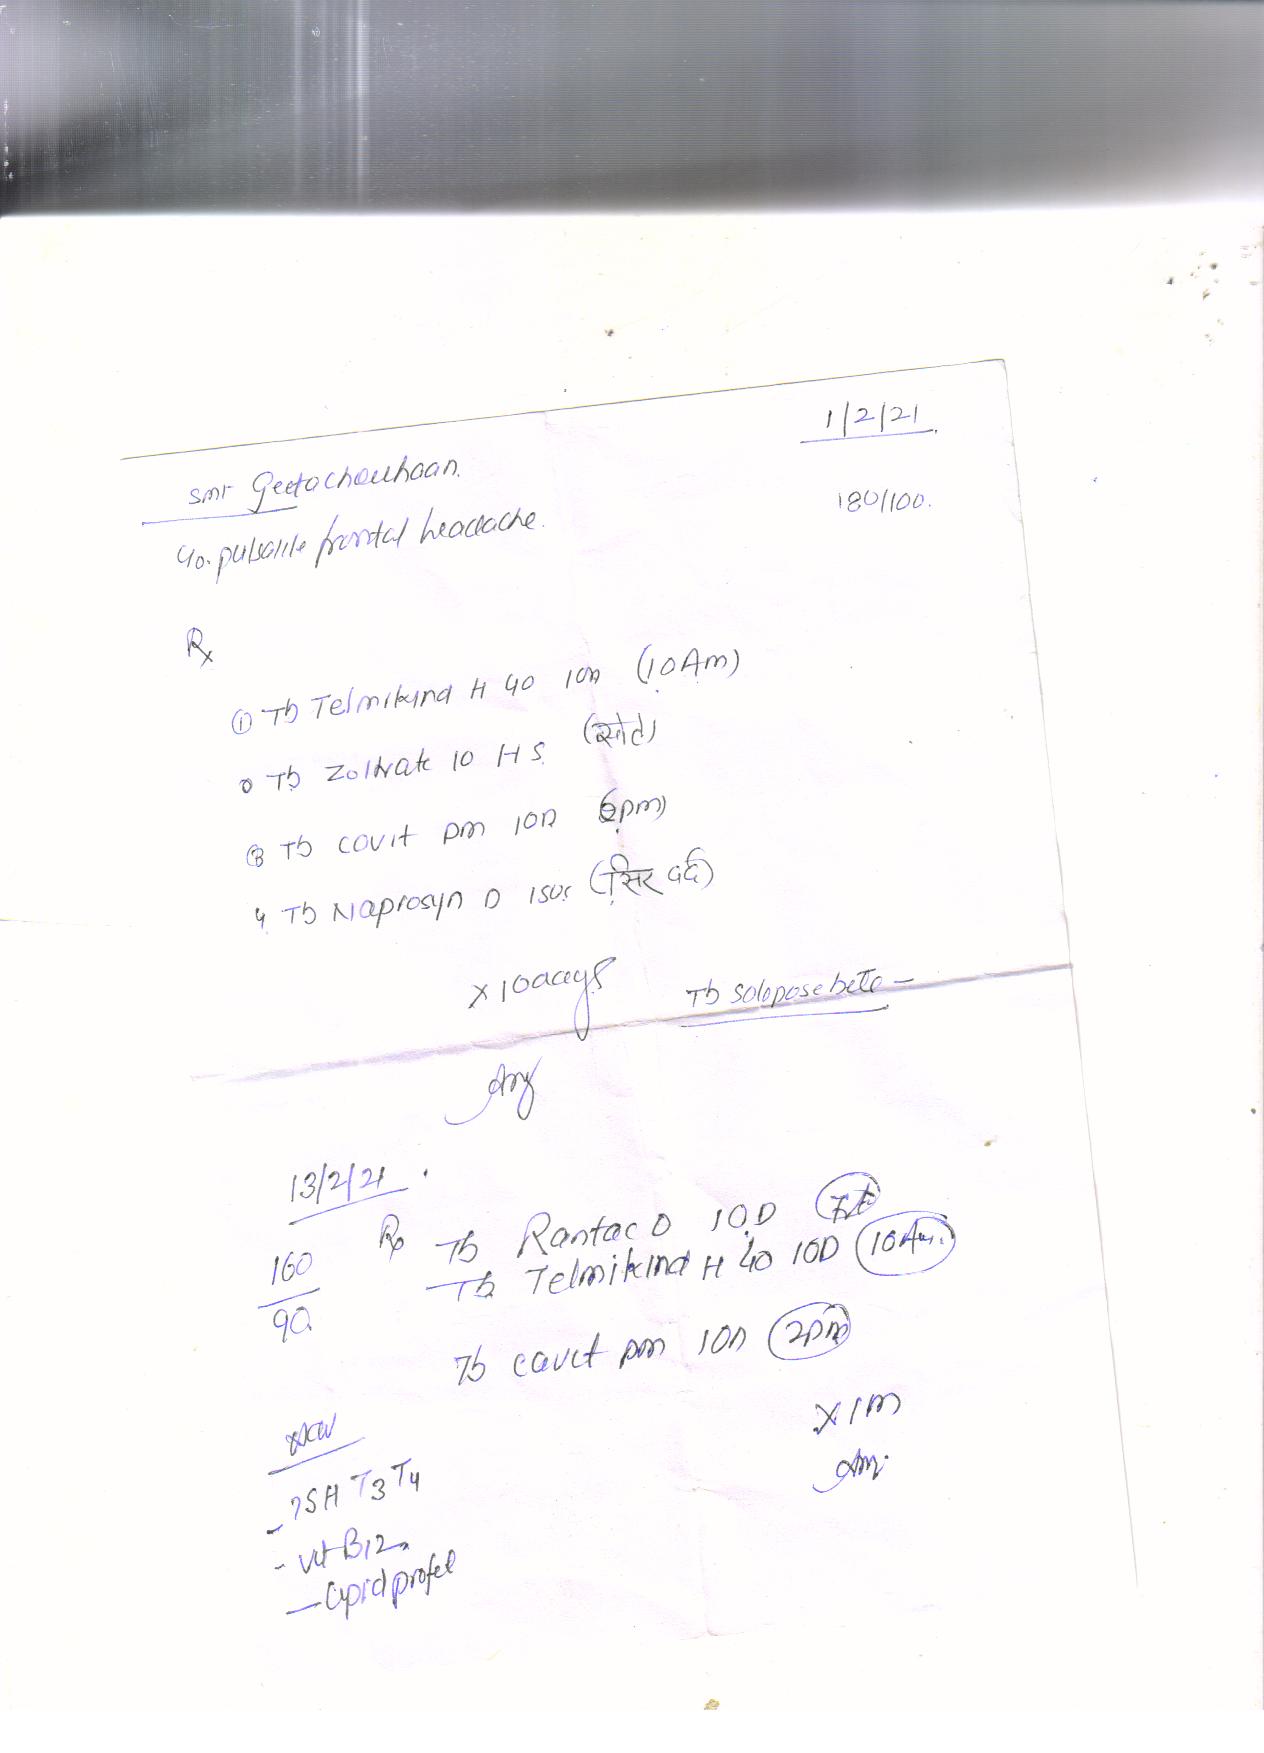 1/2/21
Smt Geeta Chauhaan.
180/100.
c/o. pulsatile frontal headache.
Rx
① Tb Telmikind H 40 1OD (10 Am)
Tb Zoltrate 10 HS (सोते)
③ Tb Covit pm 1OD (2pm)
4 Tb Naprosyn D 1SOS (सिर दर्द)
x 10 days
Tb Solopose beta -
13/2/21.
160
90
Rx Tb Rantac D 1OD
Tb Telmikind H 40 1OD 10 Am.
Tb Covit pm 1OD 2pm
x 1m
- TSH T3 T4
- Vit B12
- Lipid profel